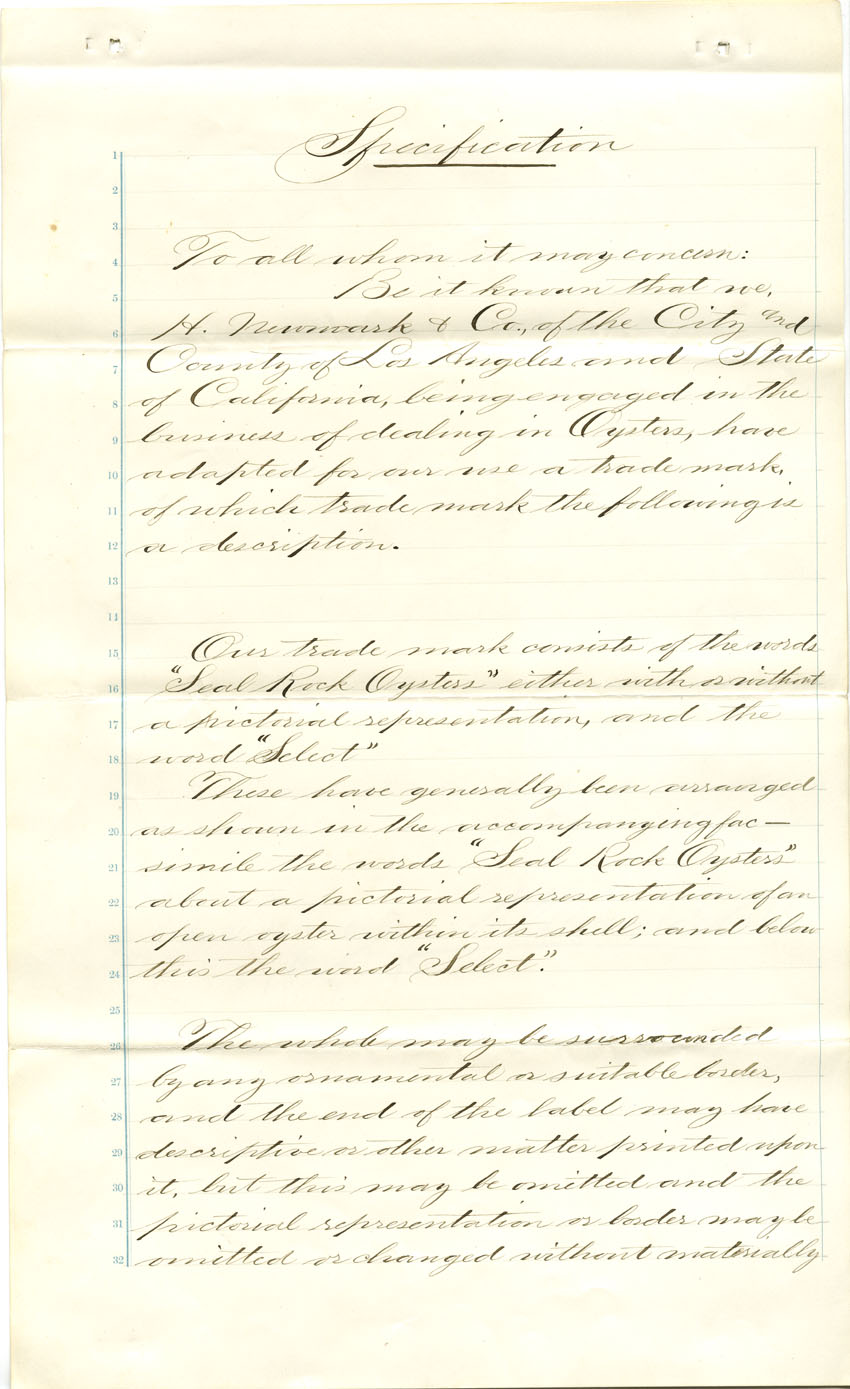 Specification
1
2
3
4 To all whom it may concern:
5 Be it known that we,
6 H. Newmark & Co., of the City and
7 County of Los Angeles and State
8 of California, being engaged in the
9 business of dealing in Oysters, have
10 adapted for our use a trade mark,
11 of which trade mark the following is
12 a description.
13
14
15 Our trade mark consists of the words
16 "Seal Rock Oysters" either with or without
17 a pictorial representation, and the
18 word "Select"
19 These have generally been arranged
20 as shown in the accompanying fac—
21 simile the words "Seal Rock Oysters"
22 about a pictorial representation of an
23 open oyster within its shell; and below
24 this the word "Select".
25
26 The whole may be surrounded
27 by any ornamental or suitable border,
28 and the end of the label may have
29 descriptive or other matter printed upon
30 it, but this may be omitted and the
31 pictorial representation or border may be
32 omitted or changed without materially